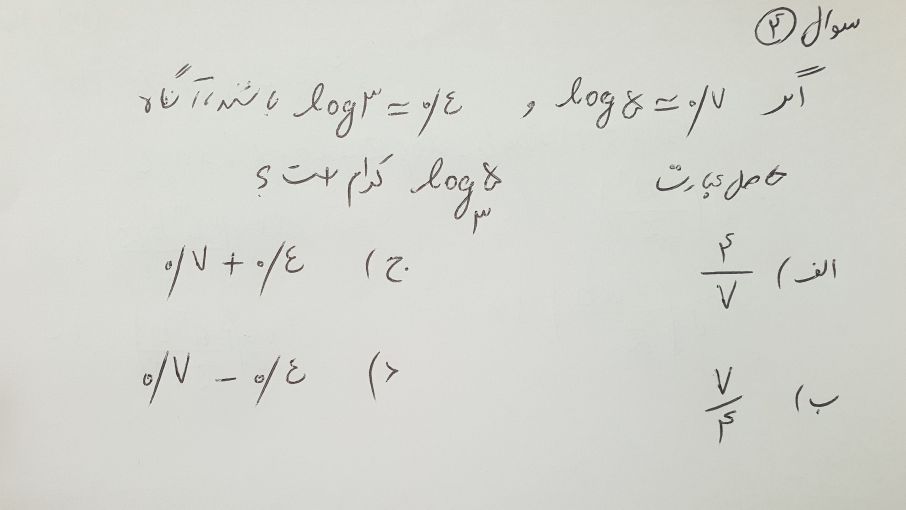 سوال ۴
اگر log ۵ ≃ ۰/۷ و log ۳ ≃ ۰/۴ باشند، آنگاه
حاصل عبارت log₃ ۵ کدام است ؟
الف) ۴/۷ ج) ۰/۷ + ۰/۴
ب) ۷/۴ د) ۰/۷ - ۰/۴